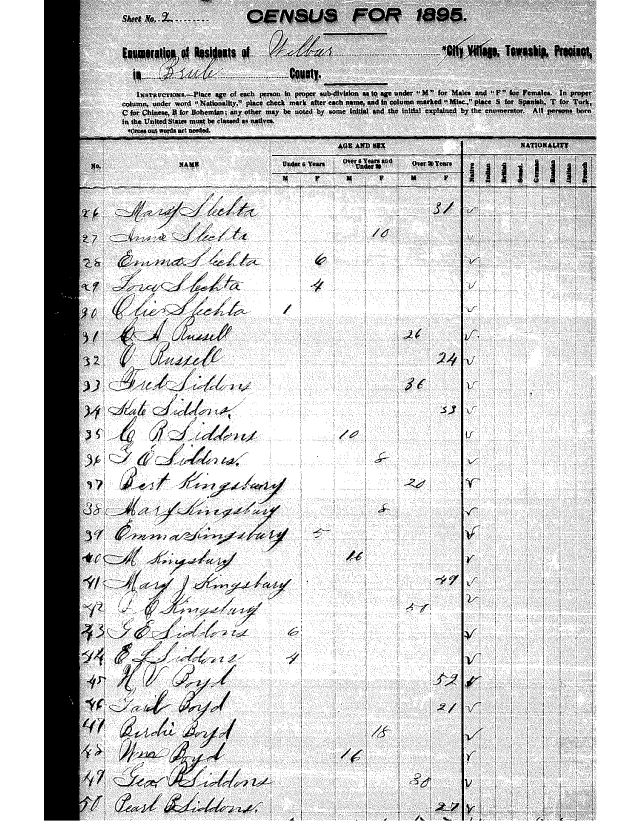 Sheet No. 2
CENSUS FOR 1895.
Enumeration of Residents of Wilbur *City Village, Township, Precinct,
in Brule County.
INSTRUCTIONS.—Place age of each person in proper sub-division as to age under "M" for Males and "F" for Females. In proper
column, under word "Nationality," place check mark after each name, and in column marked "Misc." place S for Spanish, T for Turk,
C for Chinese, B for Bohemian; any other may be noted by some initial and the initial explained by the enumerator. All persons born
in the United States must be classed as natives.
*Cross out words not needed.
AGE AND SEX NATIONALITY
No. NAME Under 6 Years Over 6 Years and Under 20 Over 20 Years
M F M F M F Native Russian French
26 Mary Slechta 31 ✓
27 Annie Slechta 10 ✓
28 Emma Slechta 6 ✓
29 Slechta 4 ✓
30 Olie Slechta 1 ✓
31 A Russell 26 ✓
32 O Russell 24 ✓
33 Fred Siddons 36 ✓
34 Kate Siddons. 33 ✓
35 C R Siddons 10 ✓
36 G E Siddons. 8 ✓
37 Bert Kingsbury 20 ✓
38 Mary Kingsbury 8 ✓
39 Emma Kingsbury 5 ✓
40 M Kingsbury 16 ✓
41 Mary J Kingsbury 49 ✓
42 C Kingsbury 51 ✓
43 G E Siddons 6 ✓
44 E L Siddons 4 ✓
45 V Boyd 52 ✓
46 Boyd 21 ✓
47 Birdie Boyd 18 ✓
48 Wm Boyd 16 ✓
49 Geo R Siddons 30 ✓
50 Pearl E Siddons. 27 ✓